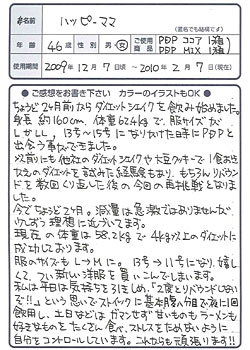 お名前 ハッピーママ
(匿名でも結構です)
年齢 46歳 男・女 ご使用商品 PDP ココア 1箱
PDP MIX 1箱
使用期間 2009年12月7日頃 〜 2010年2月7日(現在)
●ご感想をお書き下さい カラーのイラストもOK●
ちょうど2ヶ月前からダイエットシェイクを飲み始めました。
身長 約160cm、体重62.4kgで、服のサイズが
LかLL、13号〜15号になりかけた時にPDPと
出会う事ができました。
以前にも他社のダイエットシェイクや豆乳クッキーで1食おきかえ
のダイエットを試みた経験もあり、もちろんリバ
ウンドを数回くり返した後の今回の再挑戦となりま
した。
今でちょうど2ヶ月。減量は急激ではありませんが、
りんかく理想に近づいてます。
現在の体重は58.2kgで4kg以上のダイエットに
成功しております。
服のサイズもL→Mに。13号→11号になり、嬉し
くて、つい新しい洋服を買いこんでしまいます。
私は平日は気持ちを引きしめ、「2度とリバウンドしない
ぞ!!」という思いでストイックに基本腹八分目で夜に1回
飲用し、土日などはガマンせず甘いものもラーメンも
好きなものをたくさん食べ、ストレスをためないように
自分をコントロールしています。これからも頑張ります!!